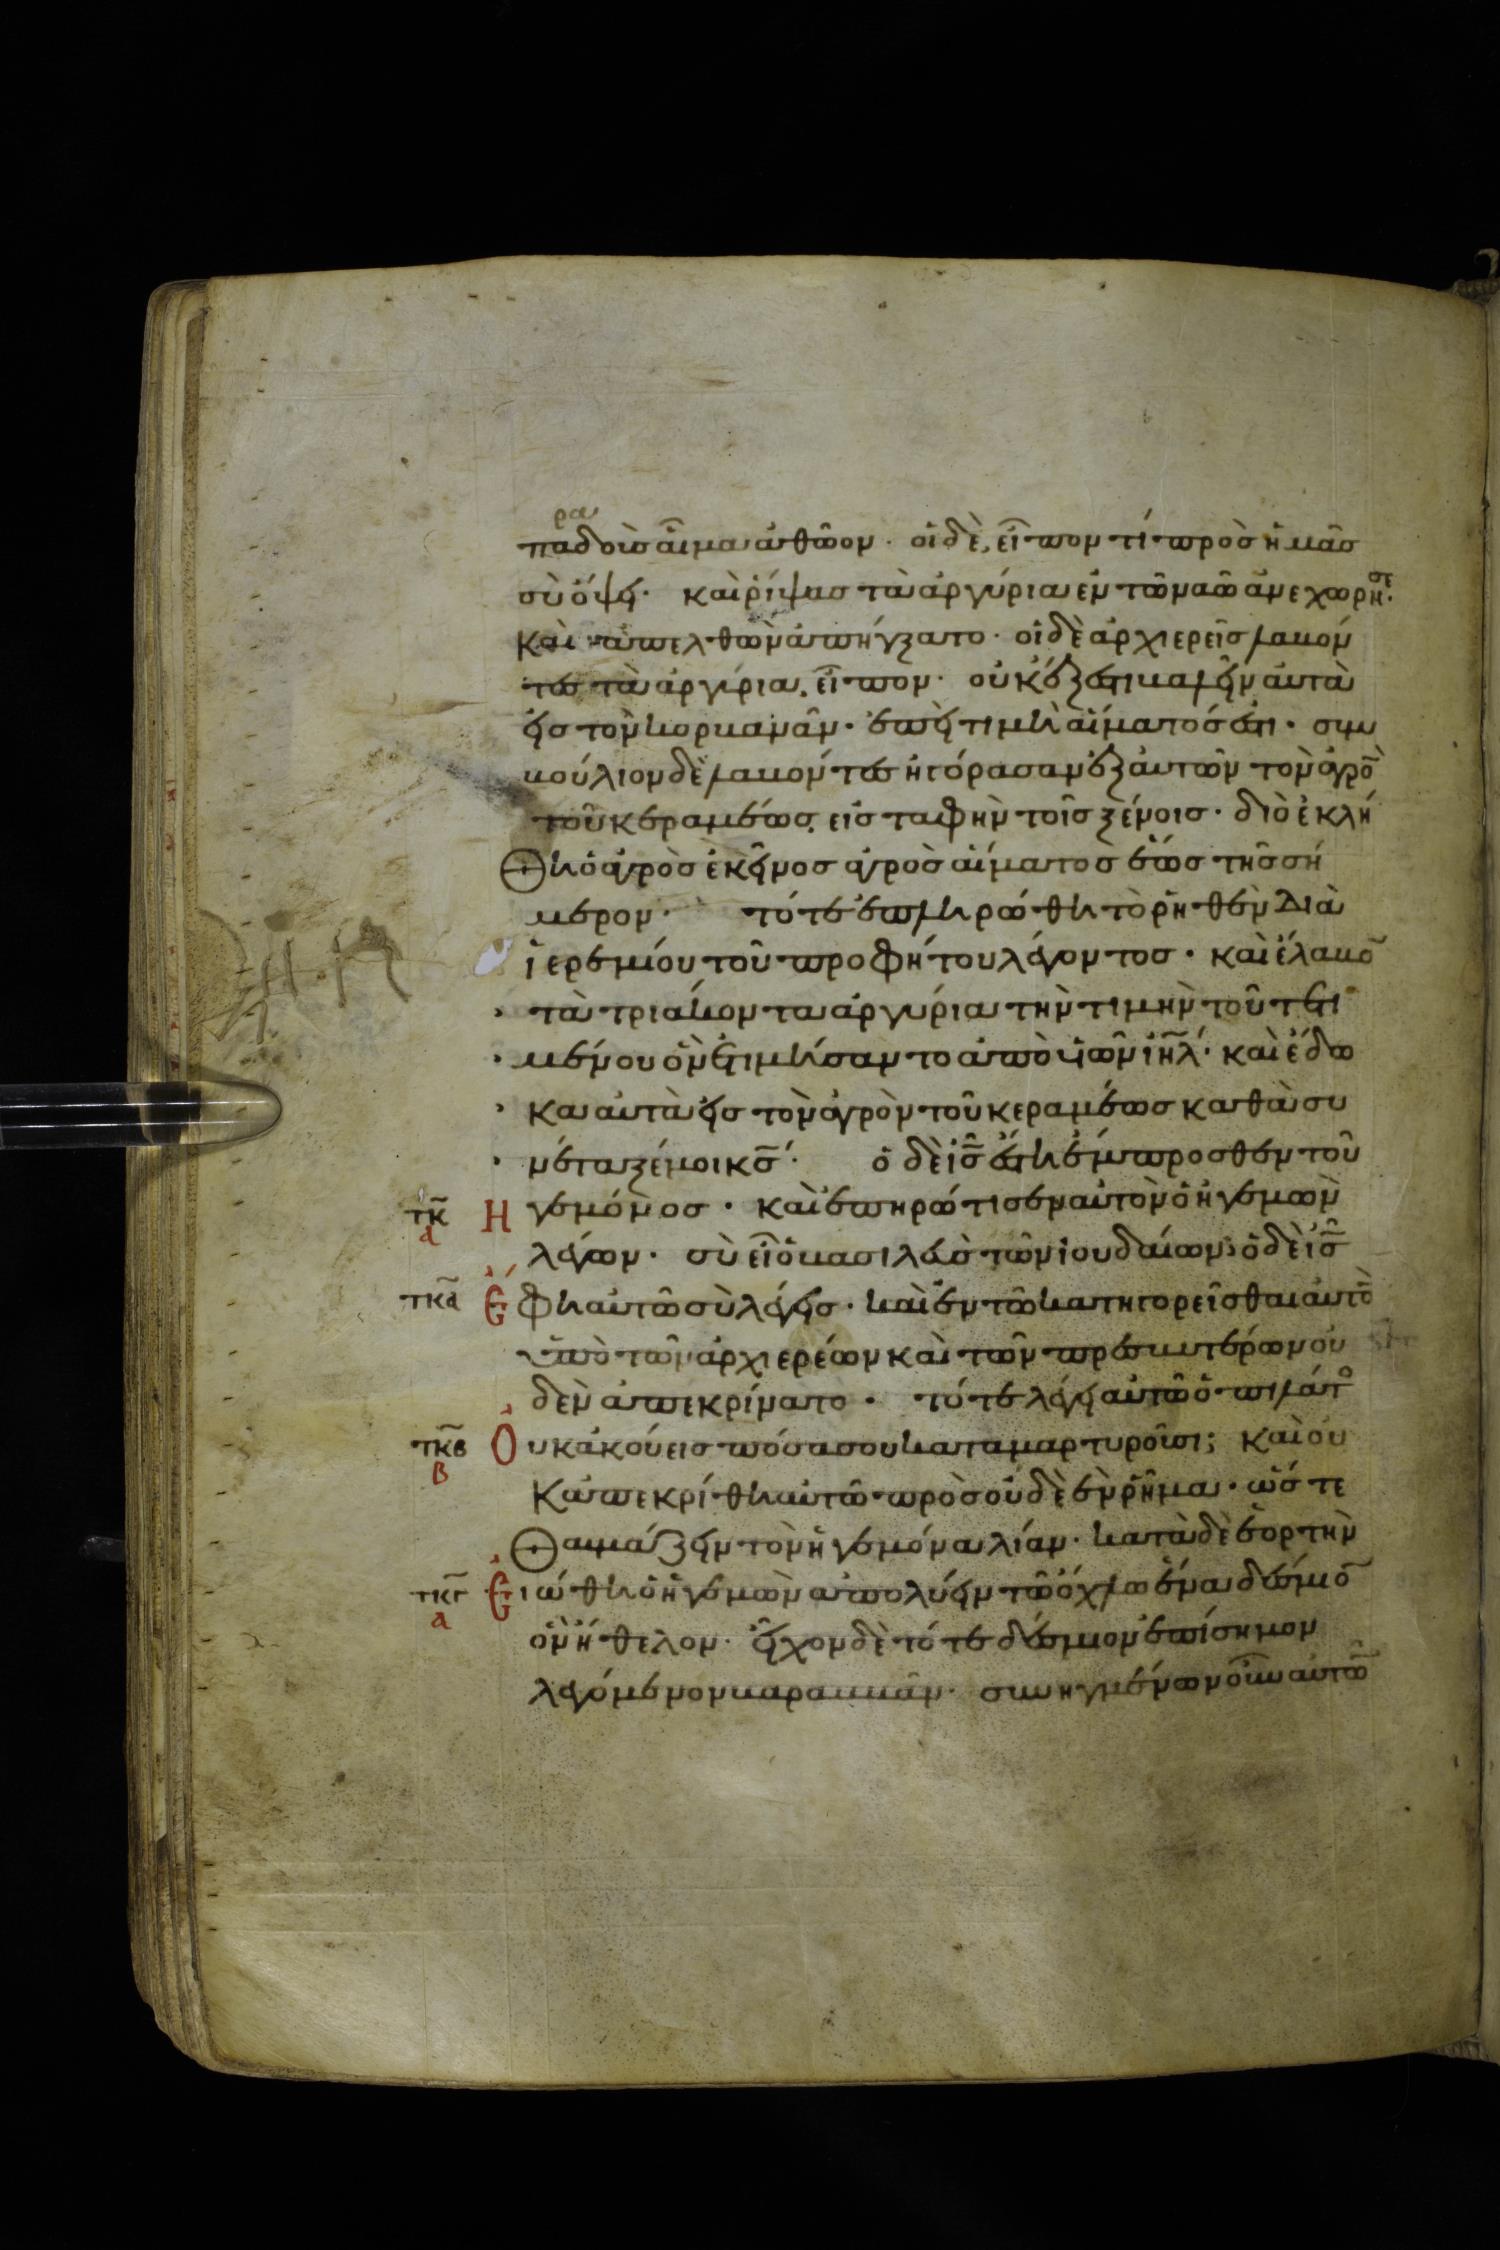 ρα
παδοὺσ αἷμα ἀθῶον · οἱ δὲ, εἶπον τί πρὸσ ἡμᾶσ
σὺ ὄψη · καὶ ῥίψασ τὰ ἀργύρια ἐν τῶ ναῶ ἀνεχώρησε·
καὶ ἀπελθὼν ἀπήγξατο · οἱ δὲ ἀρχιερεῖσ λαβόν
τεσ τὰ ἀργύρια, εἶπον · οὐκ ἔξεστι βαλεῖν αὐτὰ
εἰσ τὸν κορβανᾶν · ἐπεὶ τιμὴ αἵματοσ ἐστι · συμ
βούλιον δὲ λαβόντεσ ἠγόρασαν ἐξ αὐτῶν τὸν ἀγρὸ̄
τοῦ κεραμέωσ, εἰσ ταφὴν τοῖσ ξένοισ · διὸ ἐκλή
θη ὁ ἀγρὸσ ἐκεῖνοσ ἀγρὸσ αἵματοσ ἕωσ τῆσ σή
μερον · τότε ἐπληρώθη τὸ ῥηθὲν διὰ
ἱερεμίου τοῦ προφήτου λέγοντοσ · καὶ ἔλαβο̄
τὰ τριάκοντα ἀργύρια τὴν τιμὴν τοῦ τετι
μένου ὃν ἐτιμήσαντο ἀπὸ υἱῶν ιη̄λ · καὶ ἔδω
κα αὐτὰ εἰσ τὸν ἀγρὸν τοῦ κεραμέωσ καθὰ συ
νέταξέ μοι κσ̄ · ὁ δὲ ισ̄ ἔστη ἔμπροσθεν τοῦ
τκ̄ Ηγεμόνοσ · καὶ ἐπηρώτισεν αὐτὸν ὁ ἡγεμὼν
α
λέγων · σὺ εἶ ὁ βασιλεὺσ τῶν ἰουδαίων · ὁ δὲ ισ̄
τκᾱ Ἔφη αὐτῶ σὺ λέγεισ · καὶ ἐν τῶ κατηγορεῖσθαι αὐτὸ̄
ὑπὸ τῶν ἀρχιερέων καὶ τῶν πρεσβυτέρων οὐ
δὲν ἀπεκρίνατο · τότε λέγει αὐτῶ ὁ πιλάτο
τκβ̄ Ουκ ἀκούεισ πόσα σου καταμαρτυροῦσι; καὶ οὐ
β
κ ἀπεκρίθη αὐτῶ πρὸσ οὐδὲ ἓν ῥῆμα · ὥστε
θαυμάζειν τὸν ἡγεμόνα λίαν · κατὰ δὲ ἑορτὴν
τκγ̄ Ειώθη ὁ ἡγεμὼν ἀπολύειν τῶ ὄχλω ἕνα δέσμιο̄
α
ὃν ἤθελον · εἶχον δὲ τότε δέσμιον ἐπίσημον
λεγόμενον βαραββᾶν · συνηγμένων οὖν αὐτῶ̄